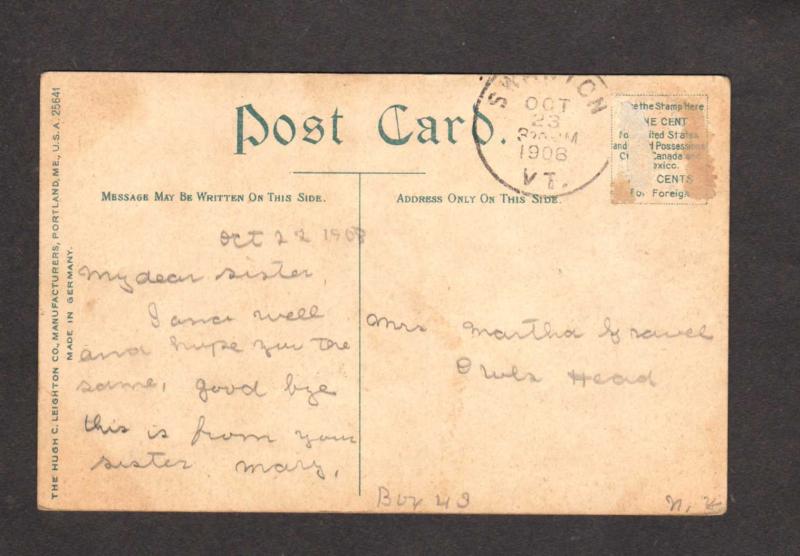 THE HUGH C. LEIGHTON CO., MANUFACTURERS, PORTLAND, ME., U.S.A. 25641
MADE IN GERMANY.
Post Card.
SWANTON
OCT
23
1908
VT.
the Stamp Here
NE CENT
ited States
and Possessions
Canada and
exico.
CENTS
for Foreign
MESSAGE MAY BE WRITTEN ON THIS SIDE.
ADDRESS ONLY ON THIS SIDE.
Oct 22 1908
My dear sister,
I am well
and hope you are
same, good bye
this is from your
sister Mary.
Mrs Martha Gravel
Owls Head
Box 43
N. Y